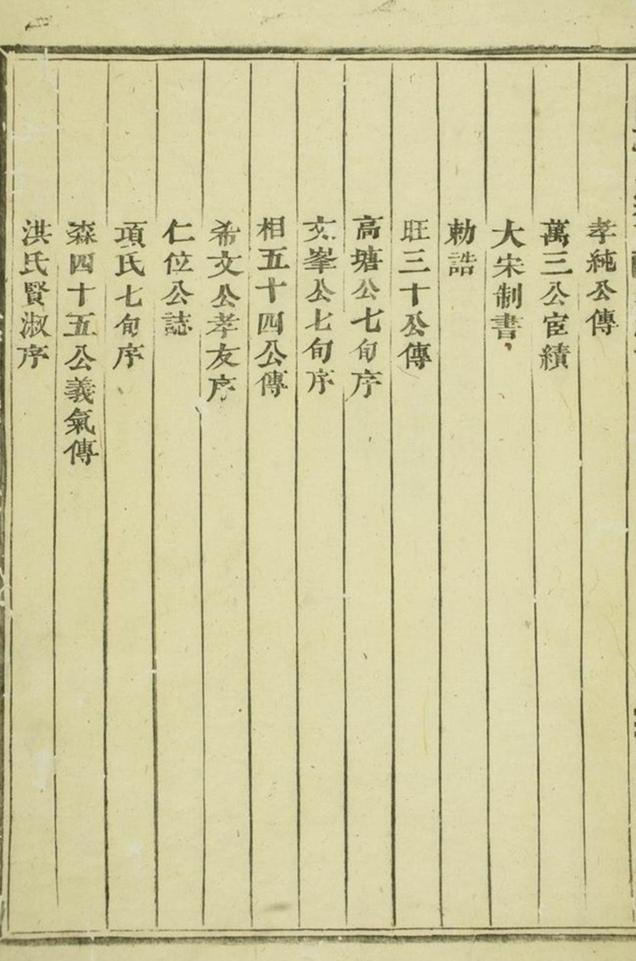 孝純公傳
萬三公宦績
大宋制書
勅誥
旺三十公傳
高塘公七旬序
文峯公七旬序
相五十四公傳
希文公孝友序
仁位公誌
項氏七旬序
森四十五公義氣傳
洪氏賢淑序